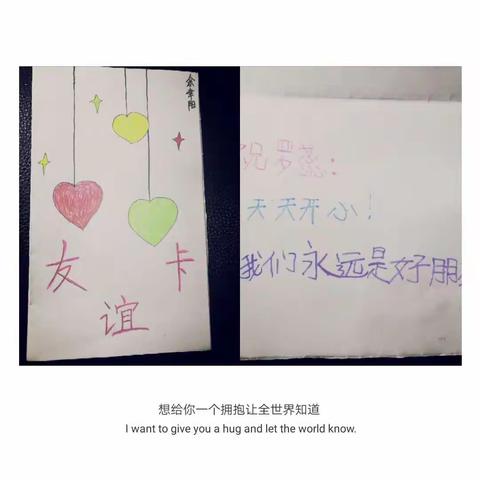 友谊卡
天天开心!
我们永远是好朋
想给你一个拥抱让全世界知道
I want to give you a hug and let the world know.